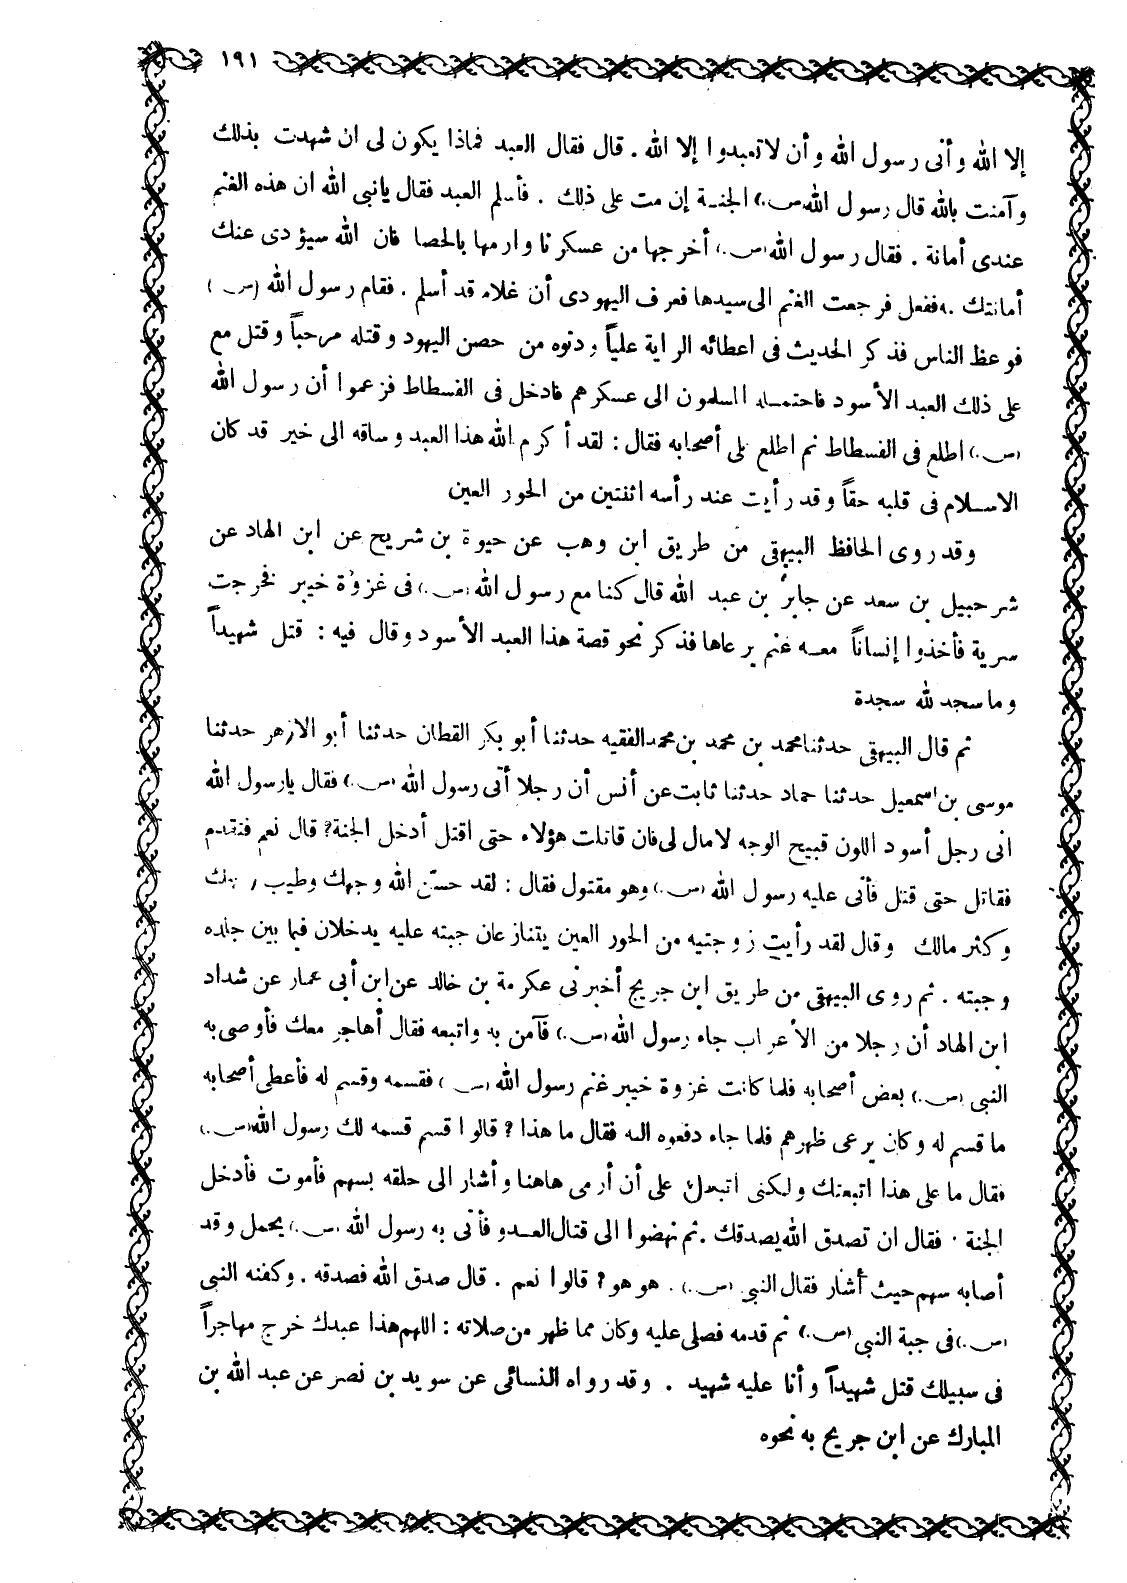 ١٩١
إلا الله وأنى رسول الله وأن لا تعبدوا إلا الله . قال فقال العبد فماذا يكون لى ان شهدت بذلك
وآمنت بالله قال رسول الله (ص.) الجنة إن مت على ذلك . فأسلم العبد فقال يانبى الله ان هذه الغنم
عندى أمانة . فقال رسول الله (ص.) أخرجها من عسكرنا وارمها بالحصا فان الله سيؤدى عنك
أمانتك . ففعل فرجعت الغنم الى سيدها فعرف اليهودى أن غلامه قد أسلم . فقام رسول الله (ص)
فوعظ الناس فذكر الحديث فى اعطائه الراية علياً ودنوه من حصن اليهود وقتله مرحباً وقتل مع
على ذلك العبد الأسود فاحتمله المسلمون الى عسكرهم فادخل فى الفسطاط فزعموا أن رسول الله
(ص.) اطلع فى الفسطاط ثم اطلع على أصحابه فقال : لقد أكرم الله هذا العبد وساقه الى خير قد كان
الاسلام فى قلبه حقاً وقد رأيت عند رأسه اثنتين من الحور العين
وقد روى الحافظ البيهقى من طريق ابن وهب عن حيوة بن شريح عن ابن الهاد عن
شرحبيل بن سعد عن جابر بن عبد الله قال كنا مع رسول الله (ص.) فى غزوة خيبر فخرجت
سرية فأخذوا إنساناً معه غنم يرعاها فذكر نحو قصة هذا العبد الأسود وقال فيه : قتل شهيداً
وما سجد لله سجدة
ثم قال البيهقى حدثنا محمد بن محمد بن محمد الفقيه حدثنا أبو بكر القطان حدثنا أبو الازهر حدثنا
موسى بن اسمعيل حدثنا حماد حدثنا ثابت عن أنس أن رجلا أتى رسول الله (ص.) فقال يارسول الله
انى رجل أسود اللون قبيح الوجه لا مال لى فان قاتلت هؤلاء حتى اقتل أدخل الجنة؟ قال نعم فتقدم
فقاتل حتى قتل فأتى عليه رسول الله (ص.) وهو مقتول فقال : لقد حسن الله وجهك وطيب ريحك
وكثر مالك وقال لقد رأيت زوجتيه من الحور العين يتنازعان جبته عليه يدخلان فيما بين جلده
وجبته . ثم روى البيهقى من طريق ابن جريج أخبرنى عكرمة بن خالد عن ابن أبى عمار عن شداد
ابن الهاد أن رجلا من الأعراب جاء رسول الله (ص.) فآمن به واتبعه فقال أهاجر معك فأوصى به
النبى (ص.) بعض أصحابه فلما كانت غزوة خيبر غنم رسول الله (ص) فقسمه وقسم له فأعطى أصحابه
ما قسم له وكان يرعى ظهرهم فلما جاء دفعوه اليه فقال ما هذا ؟ قالوا قسم قسمه لك رسول الله (ص.)
فقال ما على هذا اتبعتك ولكنى اتبعتك على أن أرمى هاهنا وأشار الى حلقه بسهم فأموت فأدخل
الجنة . فقال ان تصدق الله يصدقك . ثم نهضوا الى قتال العدو فأتى به رسول الله (ص.) يحمل وقد
أصابه سهم حيث أشار فقال النبى (ص.) . هو هو ؟ قالوا نعم . قال صدق الله فصدقه . وكفنه النبى
(ص.) فى جبة النبى (ص.) ثم قدمه فصلى عليه وكان مما ظهر من صلاته : اللهم هذا عبدك خرج مهاجراً
فى سبيلك قتل شهيداً وأنا عليه شهيد . وقد رواه النسائى عن سويد بن نصر عن عبد الله بن
المبارك عن ابن جريج به نحوه